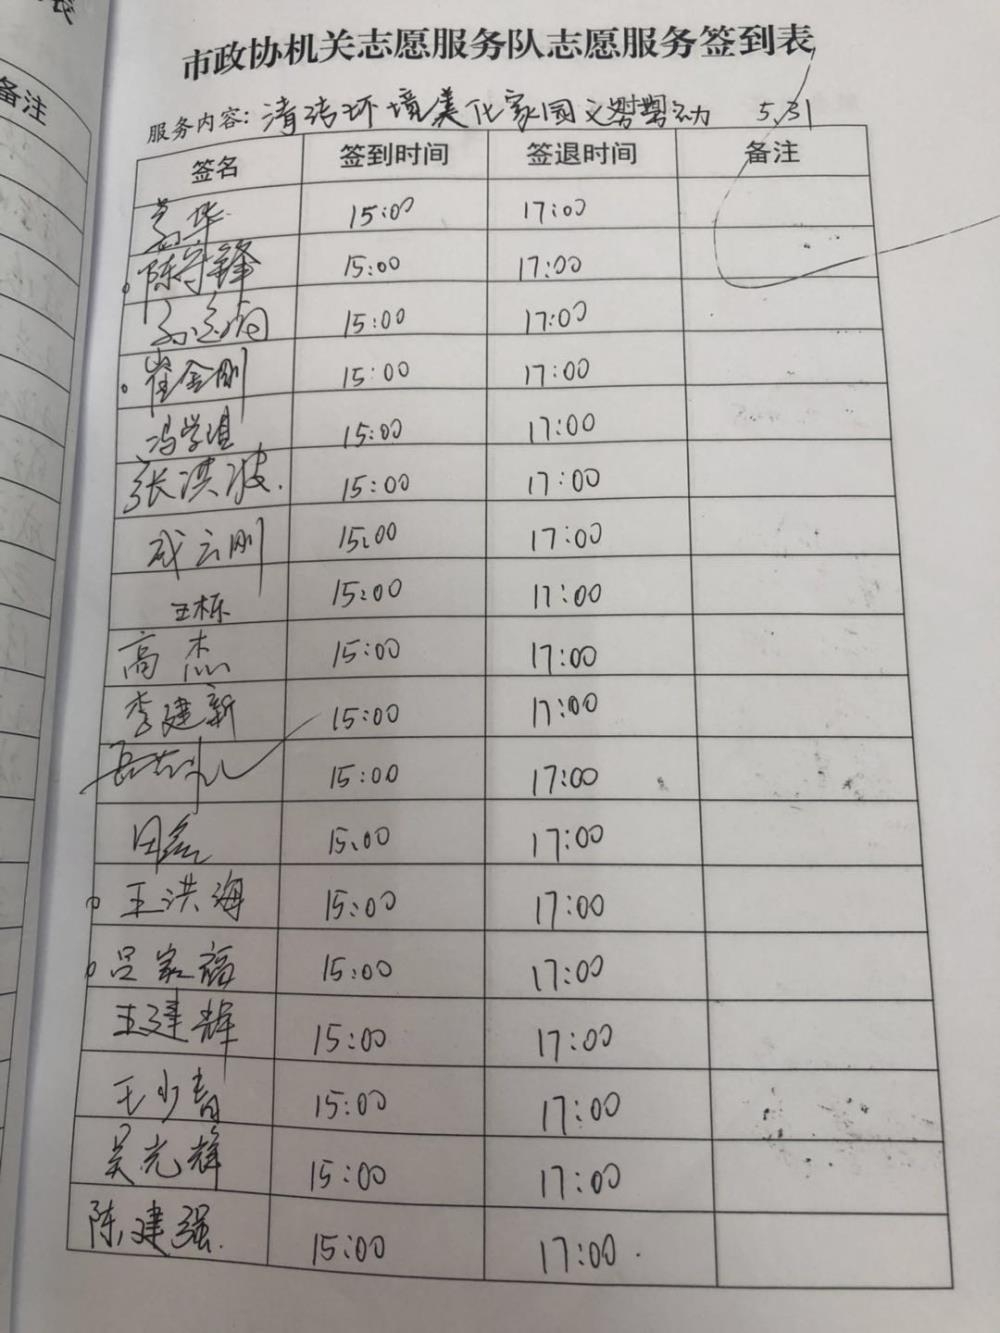 备注
市政协机关志愿服务队志愿服务签到表
服务内容：清洁环境美化家园义务劳动 5.31
签名 签到时间 签退时间 备注
华 15:00 17:00
陈守锋 15:00 17:00
15:00 17:00
崔金刚 15:00 17:00
冯学 15:00 17:00
张洪波. 15:00 17:00
成云刚 15:00 17:00
王栎 15:00 17:00
高杰 15:00 17:00
李建新 15:00 17:00
15:00 17:00
田 15:00 17:00
王洪海 15:00 17:00
吕家福 15:00 17:00
王建辉 15:00 17:00
王少春 15:00 17:00
吴光辉 15:00 17:00
陈建强. 15:00 17:00.